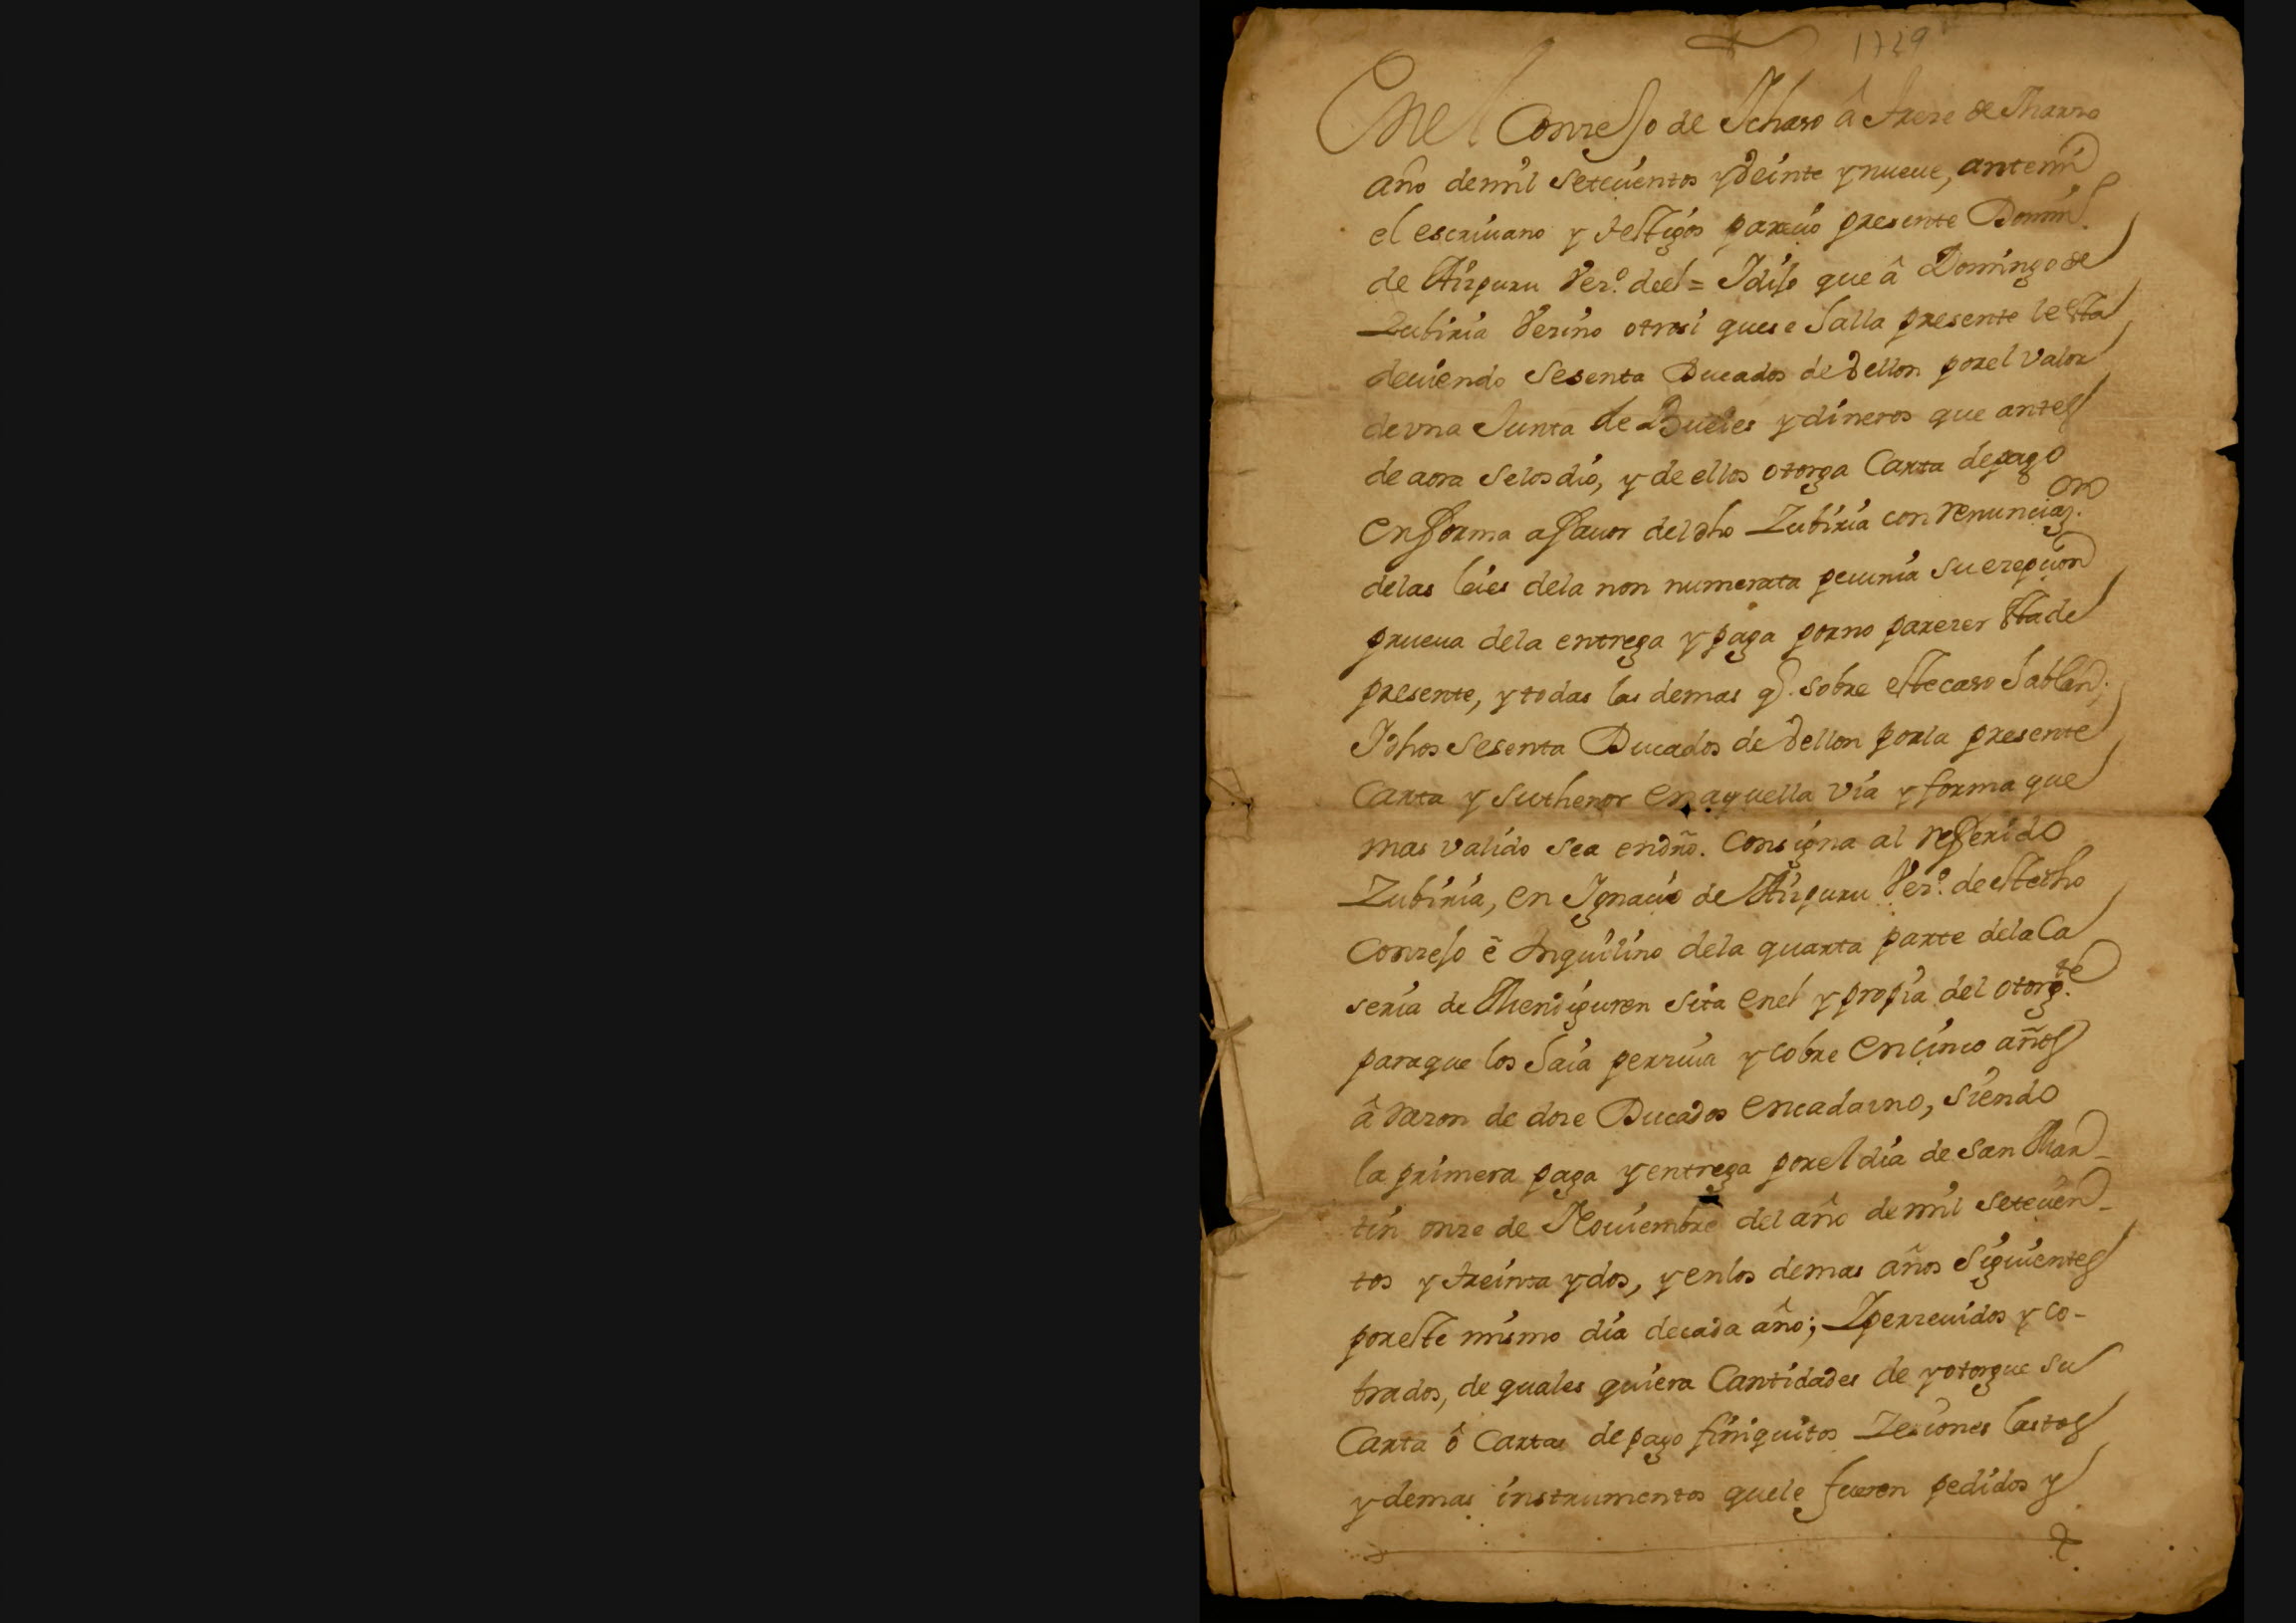 1729
En el Conzejo de Ichaso â treze de Marzo
año de mil setecientos y veinte y nueue, ante mi
el escriuano y testigos pareció presente Domin.
de Aizpuru Vez.º de el = I dijo que â Domingo de
Zubiria Vezino otrosi que se halla presente le esta
deuiendo sesenta Ducados de Vellon por el valor
de vna Junta de Bueies y dineros que antes
de aora se los dió, y de ellos otorga Carta de pago
en fforma a ffauor del dho Zubiria con renunciaz.on
de las leies de la non numerata pecunia su ezepcion
prueua de la entrega y paga por no parezer esta de
presente, y todas las demas q. sobre este caso hablan;
I dhos sesenta Ducados de Vellon por la presente
Carta y su thenor en aquella via y forma que
mas valido sea en dro. Consigna al refferido
Zubiria, en Ignacio de Aizpuru Vez.º de este dho
Conzejo é Inquilino de la quarta parte de la Ca
seria de Mendiguren sita en el y propia del otorg.te
para que los haia perziua y cobre en cinco años
â razon de doze Ducados en cada vno, siendo
la primera paga y entrega por el dia de San Mar-
tin onze de Nouiembre del año de mil setecien-
tos y treinta y dos, y en los demas años siguientes
por este mismo dia de cada año; I perzeuidos y co-
brados, de quales quiera Cantidades de y otorgue su
Carta ô Cartas de pago finiquitos Zesiones lastos
y demas instrumentos que le fueren pedidos y